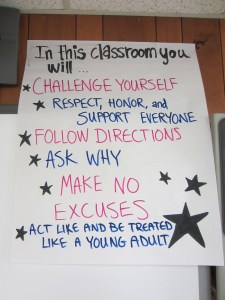 In this classroom you
will ...
CHALLENGE YOURSELF
RESPECT, HONOR, and
SUPPORT EVERYONE
FOLLOW DIRECTIONS
ASK WHY
MAKE NO
EXCUSES
ACT LIKE AND BE TREATED
LIKE A YOUNG ADULT